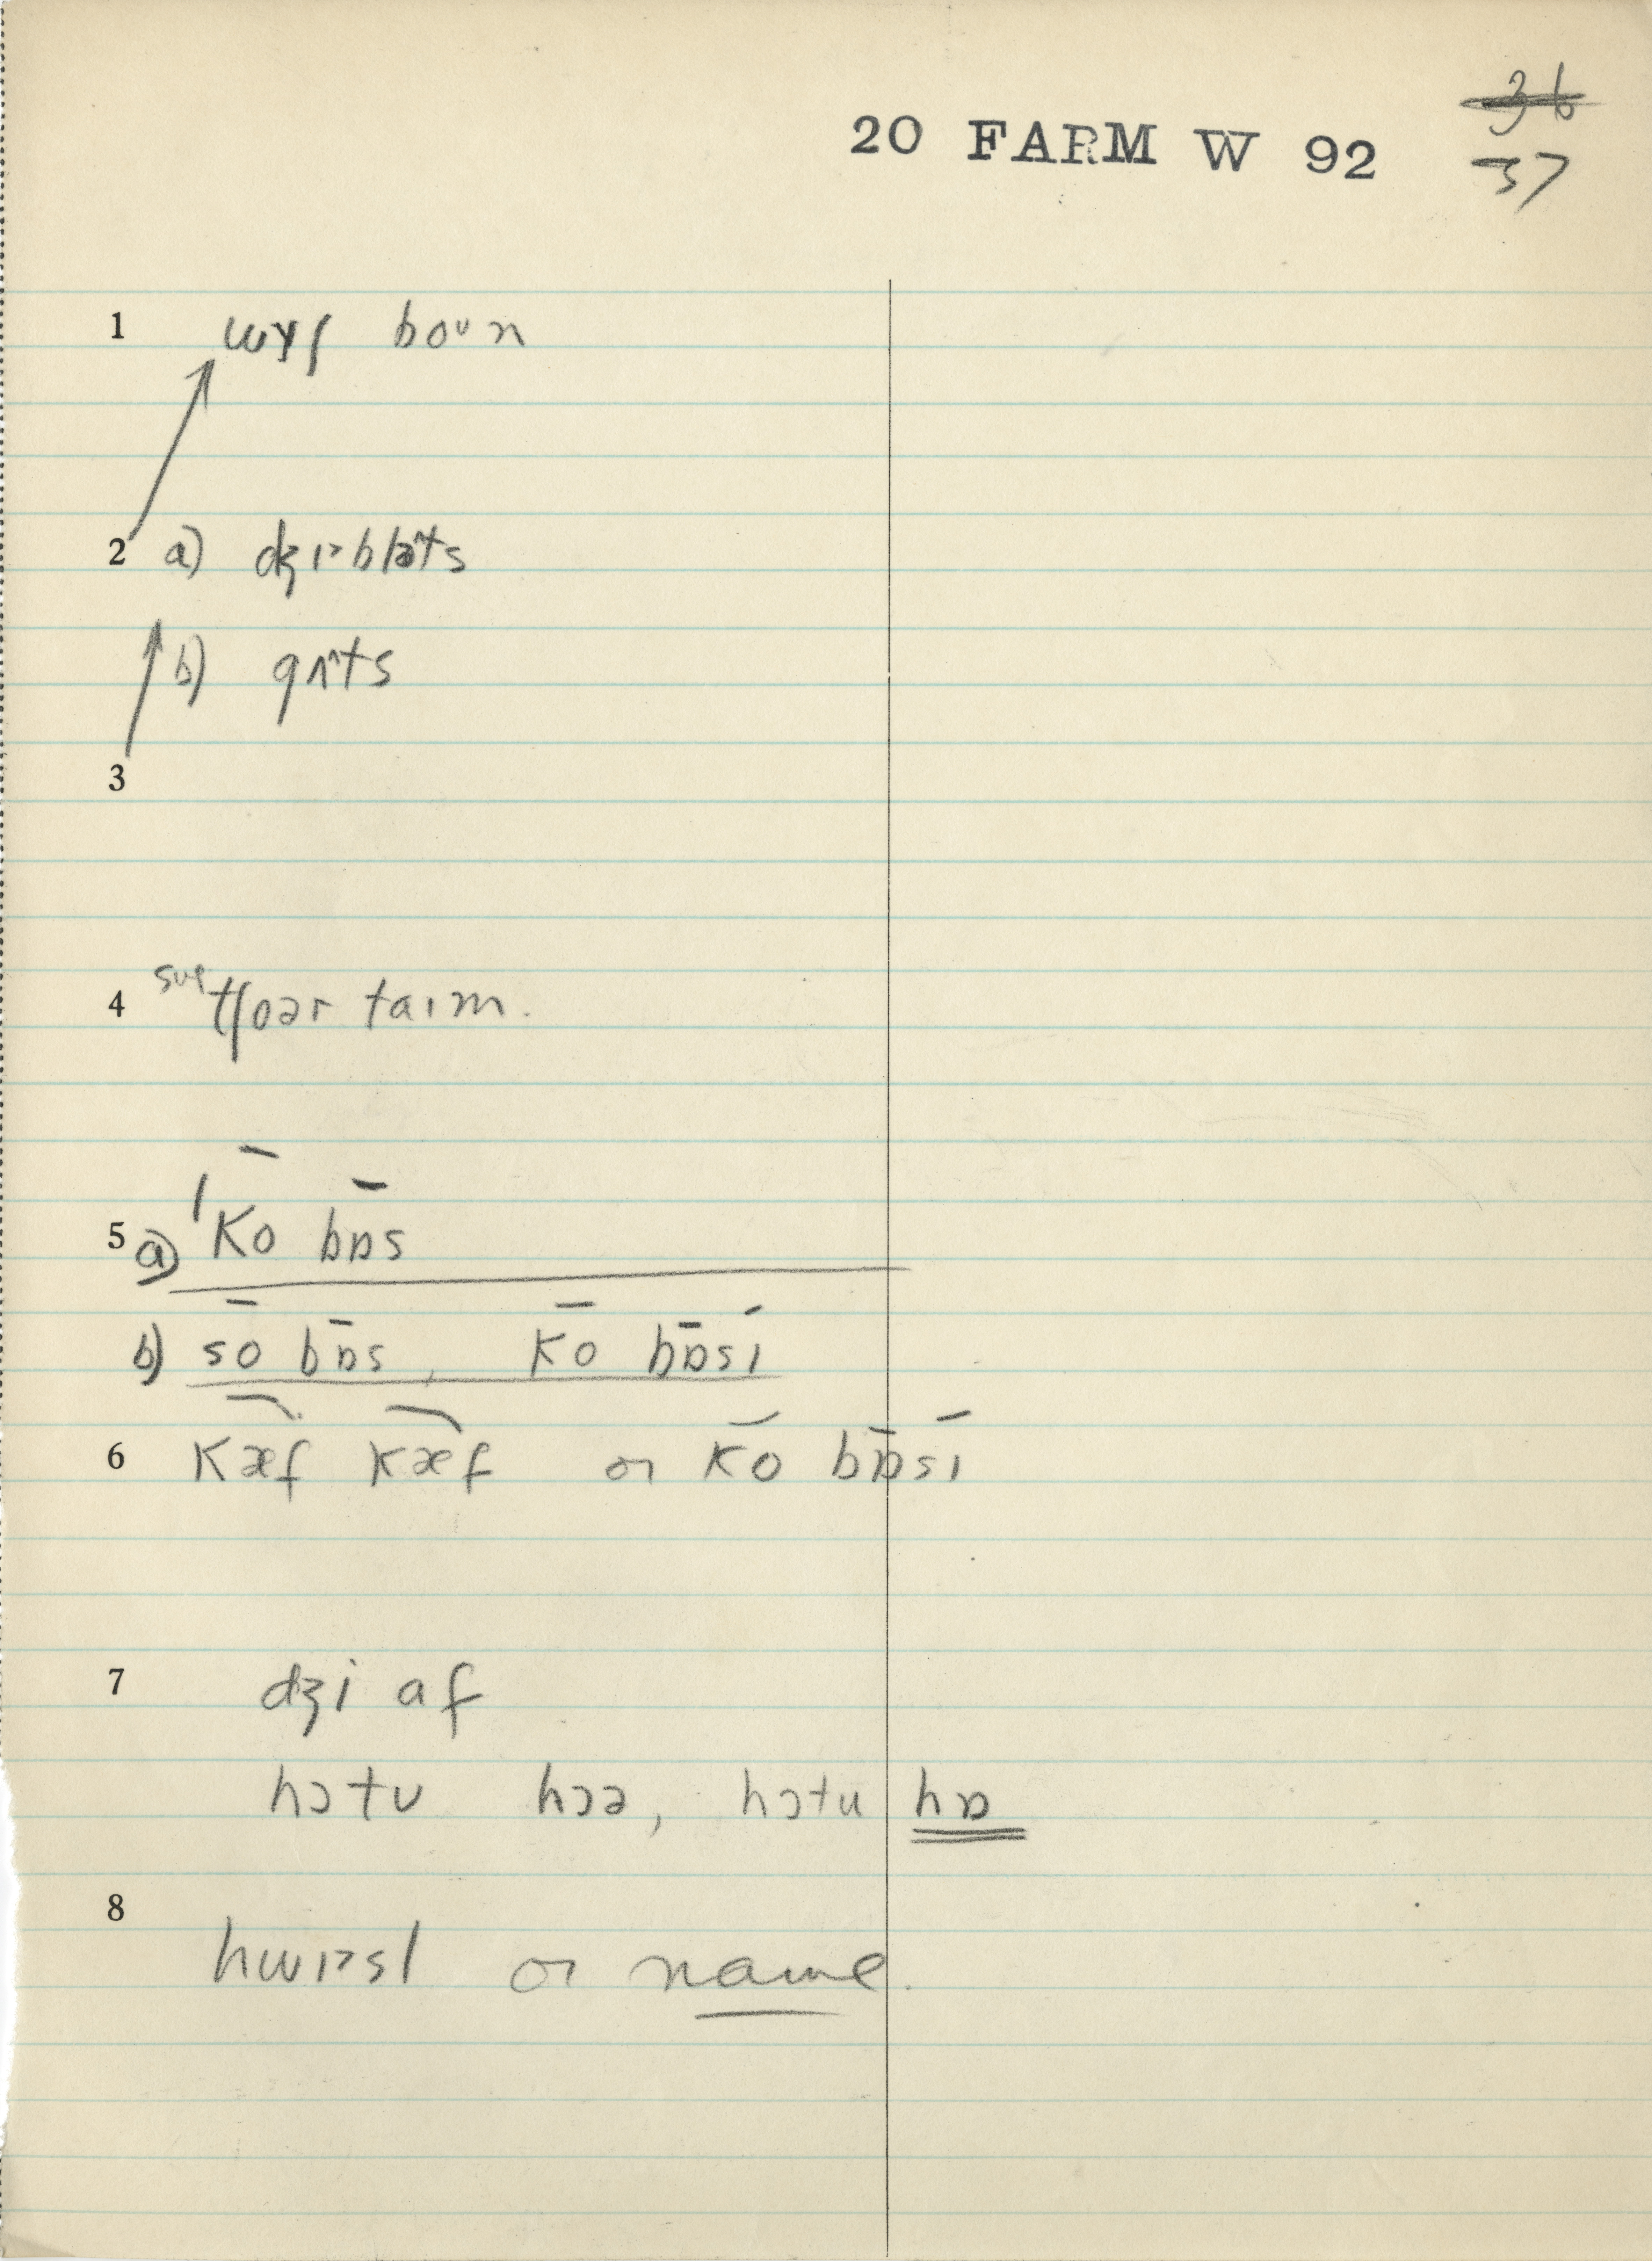 36
20 FARM W 92
37
1 wɪʃ boʊn
2 a) dʒɪbləts
b) gʌts
3
4 tʃoər taɪm.
5 a) ˈko bɒs
b) so bɒs, ko bɒsɪ
6 kæf kæf or ko bɒsɪ
7 dʒi af
hɔtu hɔə, hɔtu hɒ
8 hwɪsl or name.